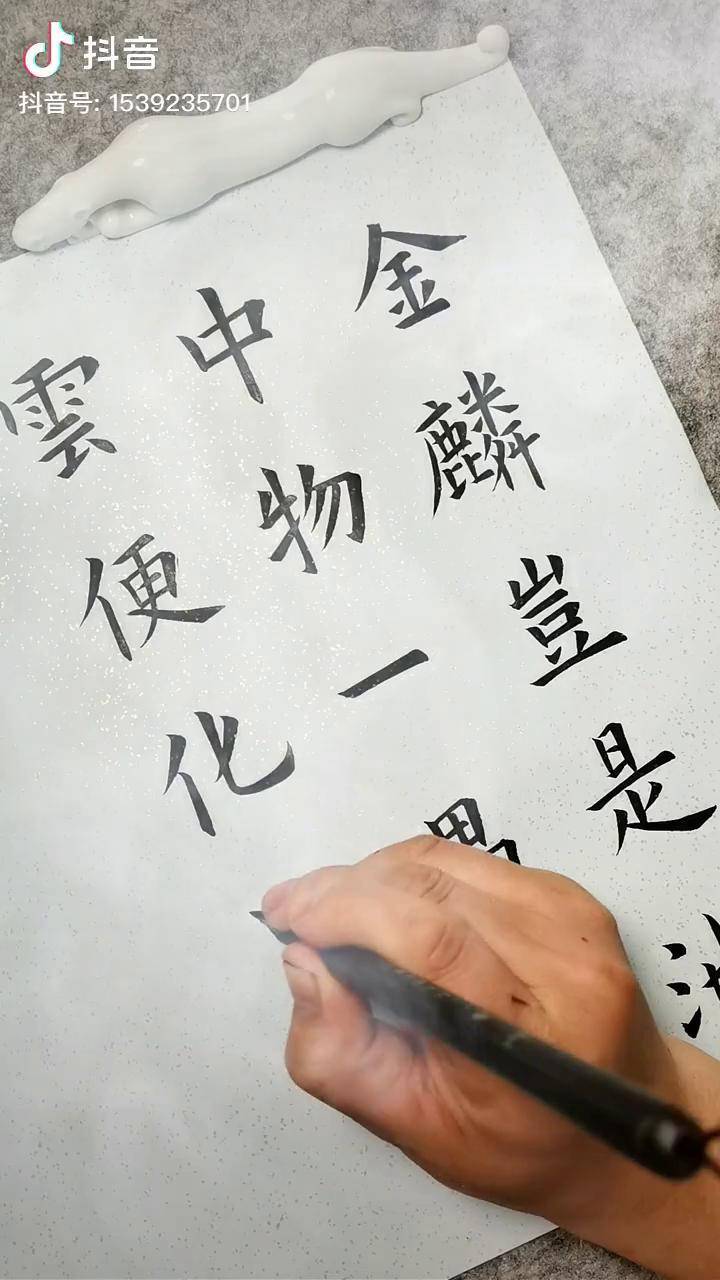 抖音
抖音号: 1539235701
金麟豈是
中物一
雲便化